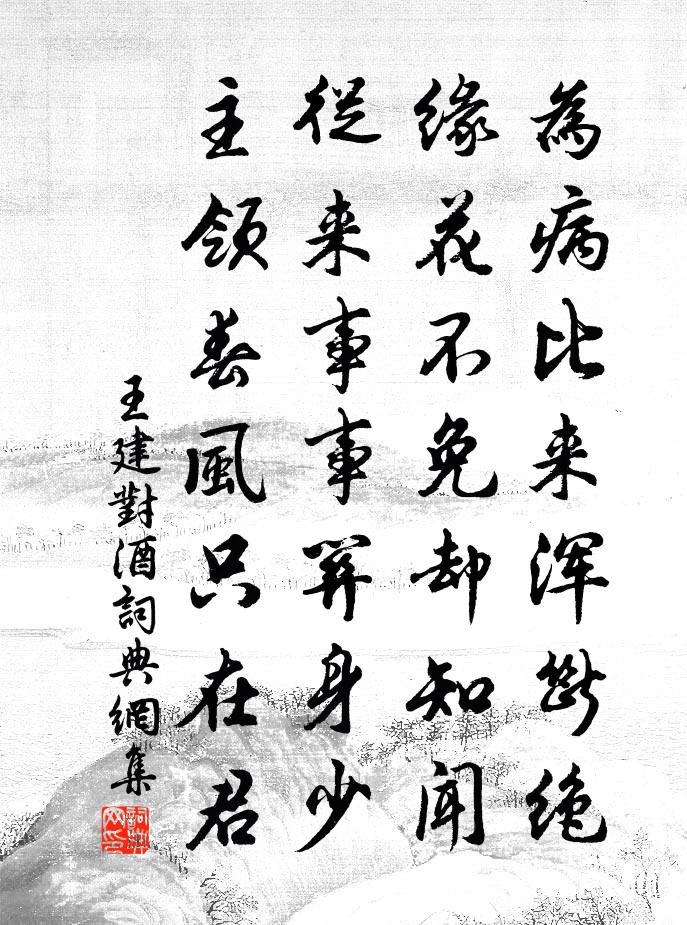 為病比来浑斷绝
緣花不免却知聞
從来事事關身少
主領春風只在君
王建對酒詞典網集
詞典網印